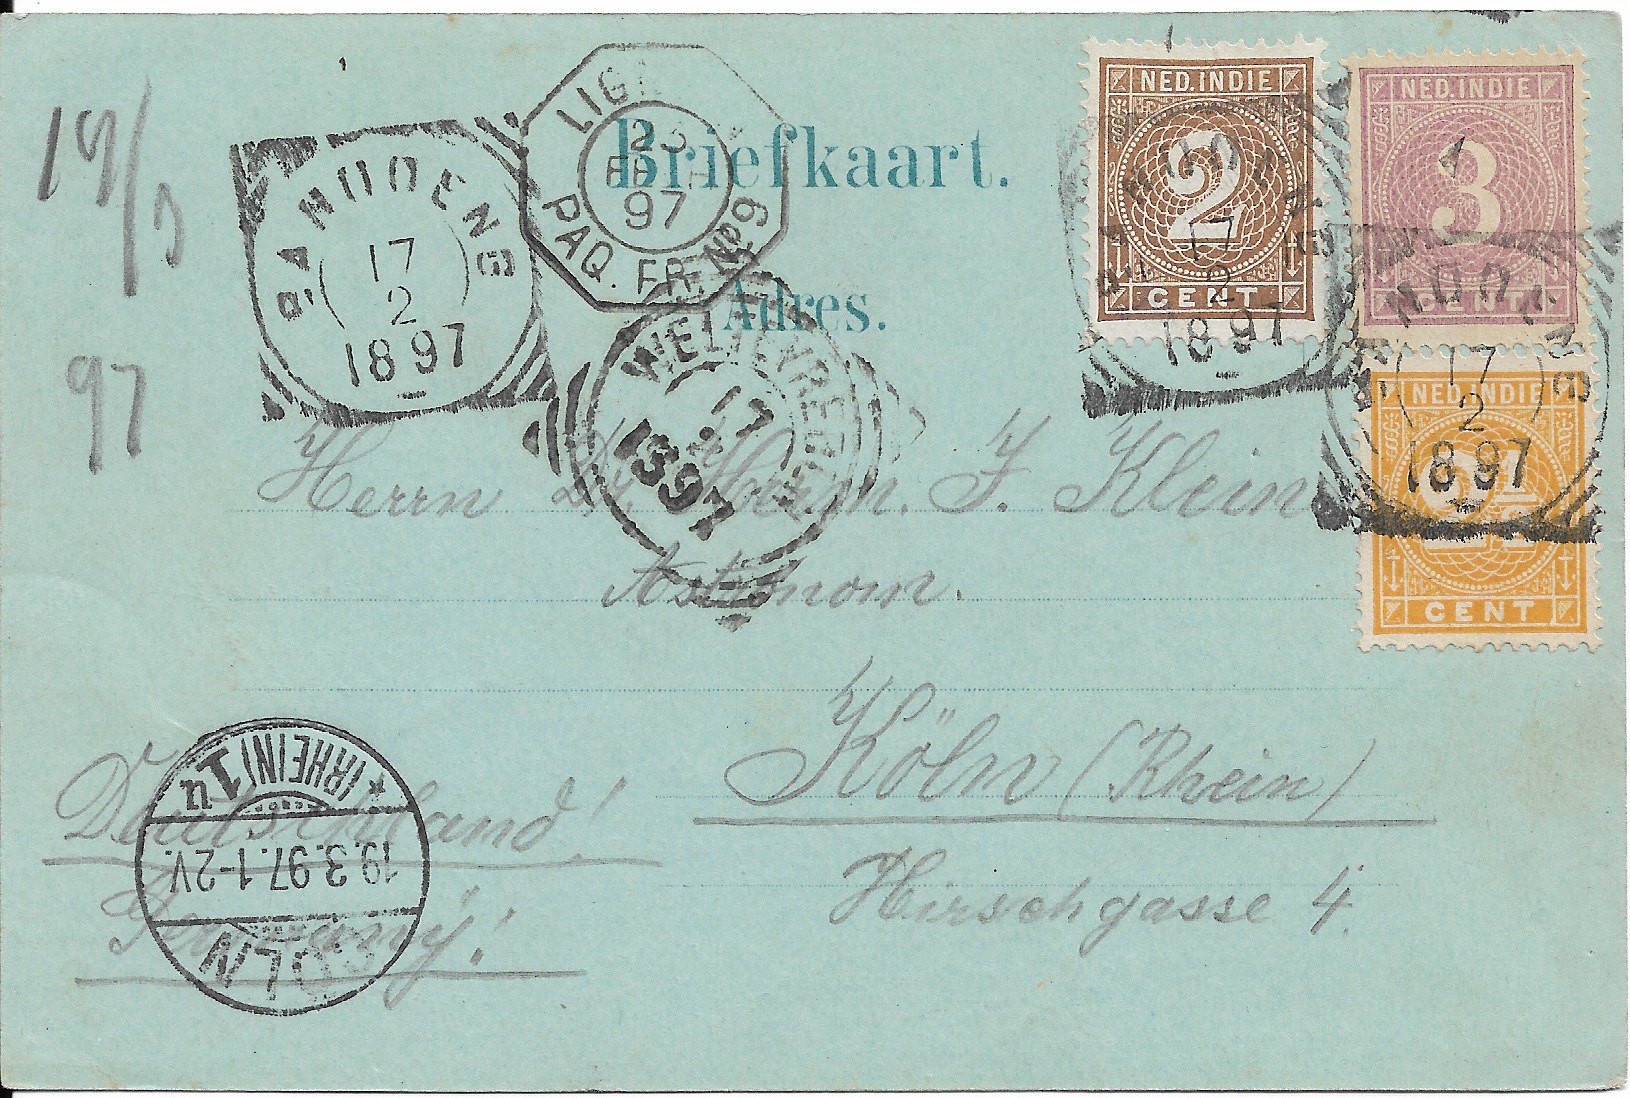 Briefkaart.
Adres.
NED.INDIE
2
CENT
NED.INDIE
3
CENT
NED.INDIE
2½
CENT
BANDOENG
17
2
1897
LIGN
23
97
PAQ. FR. Nº 9
WELTEVREDEN
17
2
1897
BANDOENG
17
2
1897
BANDOENG
17
2
1897
19/3
97
Herrn Dr. Herm. J. Klein
Astronom.
Köln (Rhein)
Hirschgasse 4.
Deutschland!
Germany!
CÖLN
19.3.97.1-2V.
*(RHEIN) 1u